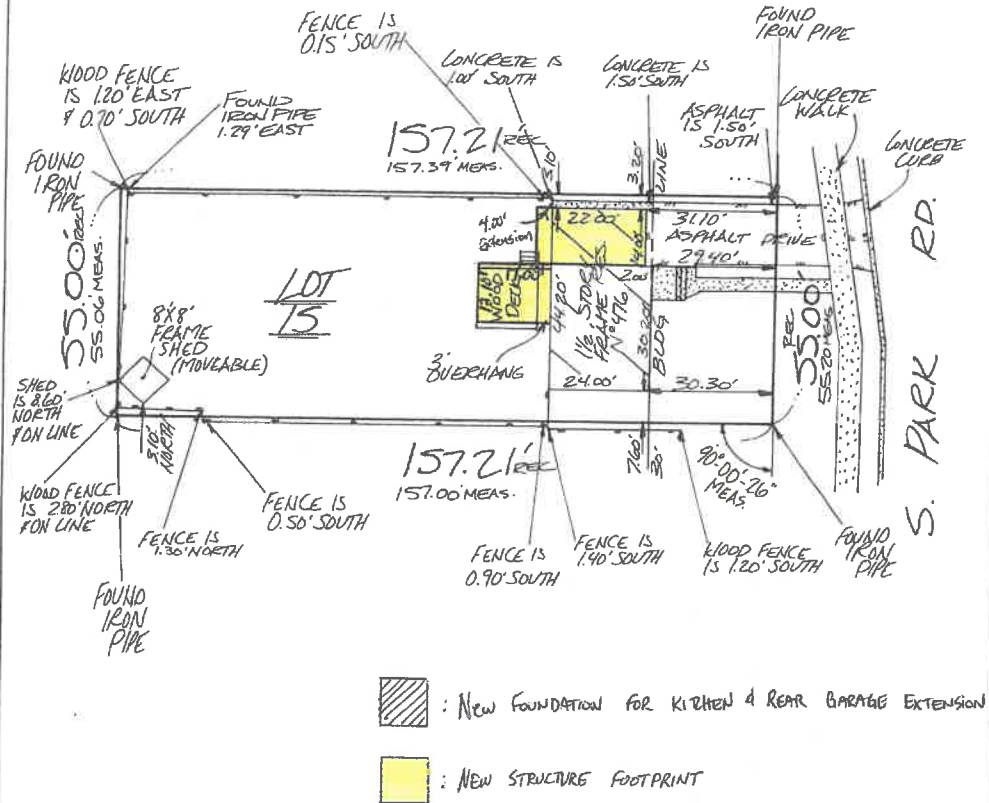 FENCE IS
0.15' SOUTH
FOUND
IRON PIPE
WOOD FENCE
IS 1.20' EAST
& 0.70' SOUTH
FOUND
IRON PIPE
1.29' EAST
CONCRETE IS
1.00' SOUTH
CONCRETE IS
1.50' SOUTH
ASPHALT
IS 1.50'
SOUTH
CONCRETE
WALK
CONCRETE
CURB
FOUND
IRON
PIPE
157.21' REC
157.39' MEAS.
3.10'
3.20'
LINE
4.00'
Extension
22.00'
14.00'
31.10'
ASPHALT DRIVE
29.40'
2.00'
55.00' REC
55.06' MEAS.
LOT
15
8'X8'
FRAME
SHED
(MOVEABLE)
WOOD
DECK
44.20'
1½ STORY
FRAME RES.
Nº 476
30.20'
BLDG
2'
OVERHANG
24.00'
30.30'
REC
55.00'
55.20 MEAS
S. PARK RD.
SHED
IS 8.60'
NORTH
& ON LINE
3.10'
NORTH
157.21' REC
157.00' MEAS.
7.60'
30'
90°-00'-26"
MEAS.
WOOD FENCE
IS 2.80' NORTH
& ON LINE
FENCE IS
1.30' NORTH
FENCE IS
0.50' SOUTH
FENCE IS
0.90' SOUTH
FENCE IS
1.40' SOUTH
WOOD FENCE
IS 1.20' SOUTH
FOUND
IRON
PIPE
FOUND
IRON
PIPE
: NEW FOUNDATION FOR KITCHEN & REAR GARAGE EXTENSION
: NEW STRUCTURE FOOTPRINT